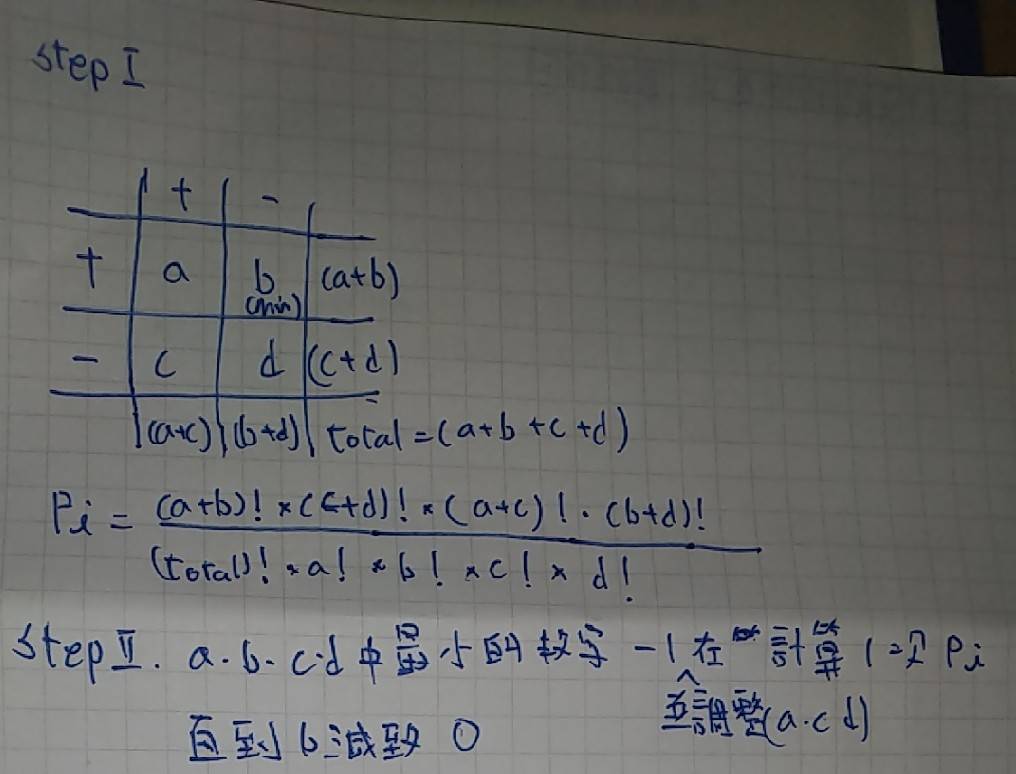 step I
+ -
+ a b (a+b)
(min)
- c d (c+d)
(a+c) (b+d) total=(a+b+c+d)
Pi = (a+b)! × (c+d)! × (a+c)! · (b+d)!
(total)! × a! × b! × c! × d!
step II. a.b.c.d 中最小的數字 -1 在 計算 1=2 Pi
並調整(a.c d)
直到 b 減致 0